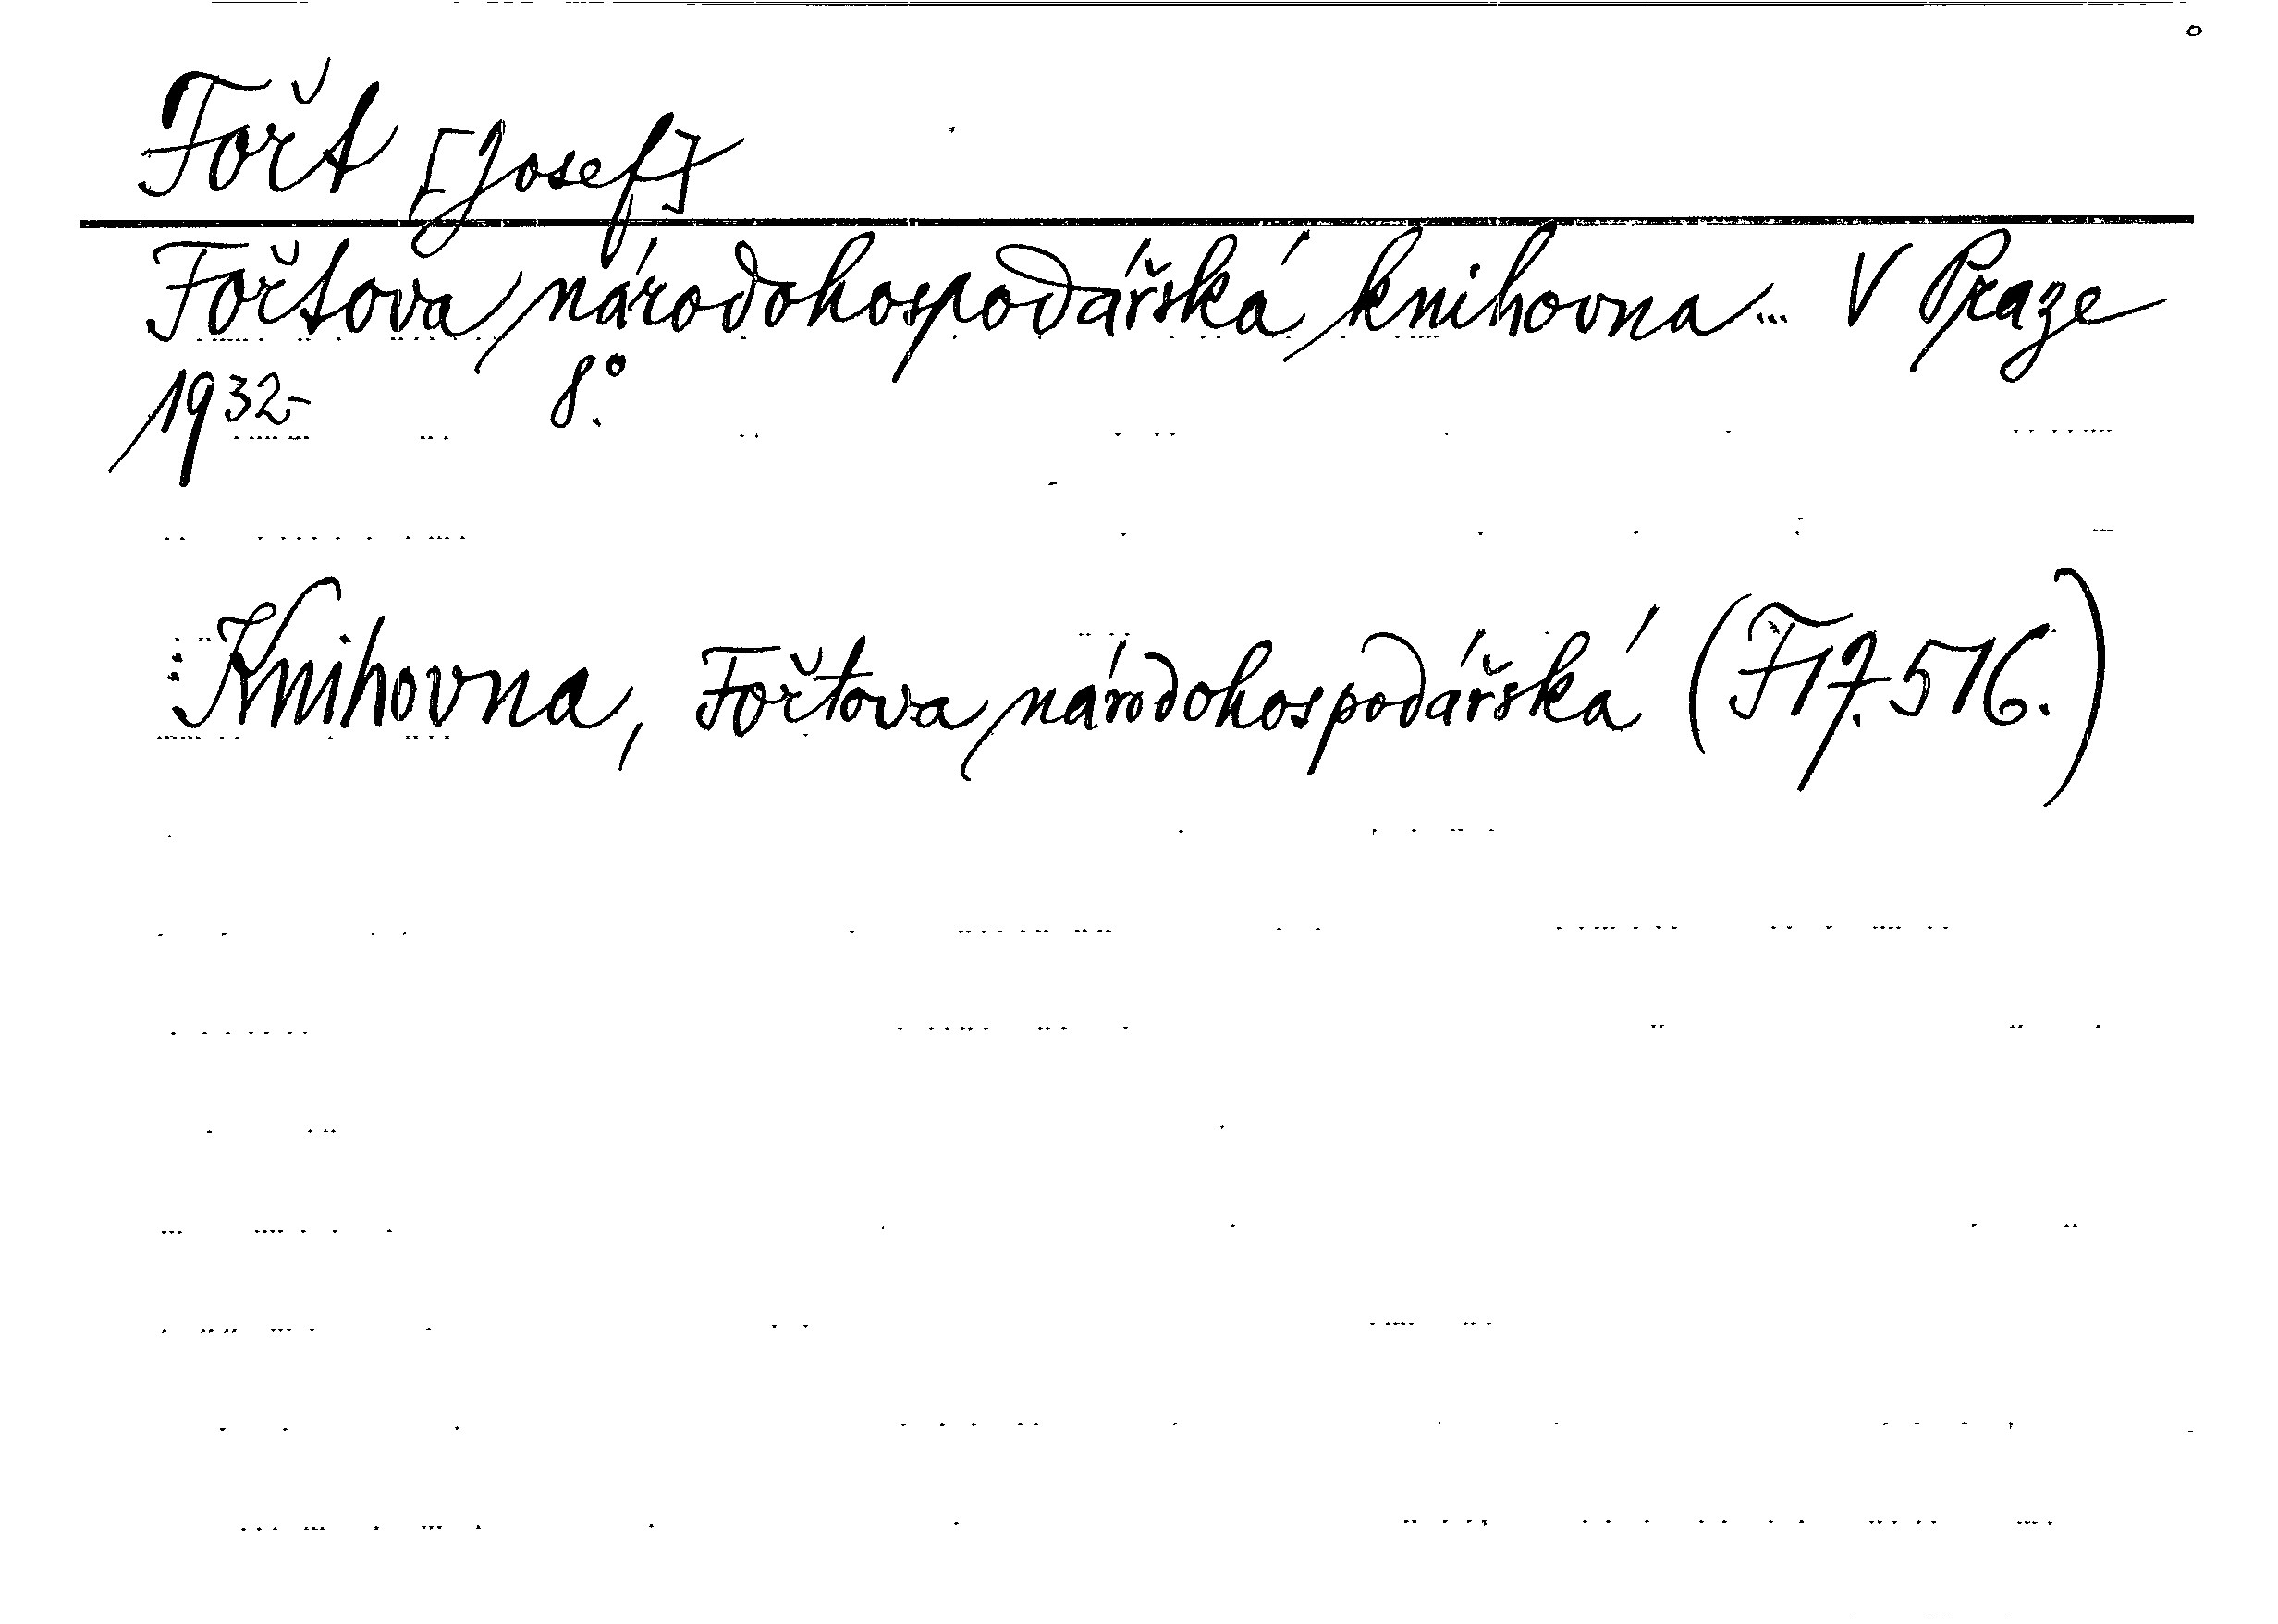 Fořt [Josef]
Fořtova národohospodářská knihovna... V Praze
1932- 8°.
Knihovna, Fořtova národohospodářská (F17.516.)